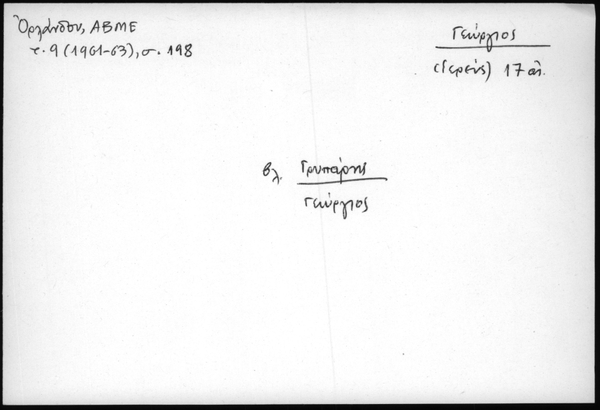 Ὀρλάνδου, ΑΒΜΕ
τ. 9 (1961-63), σ. 198
Γεώργιος
(ἱερεύς) 17 αἰ.
βλ. Γρυπάρης
Γεώργιος